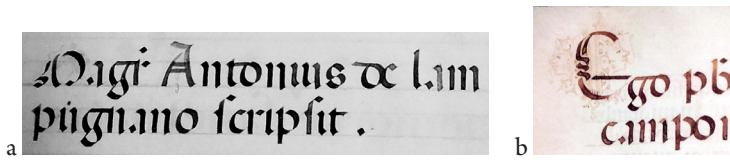 Magr̄ Antonius de lam
pugnano scripsit .
a
Ego pb
campor
b